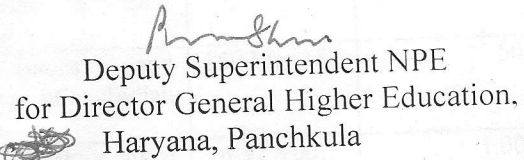 Deputy Superintendent NPE
for Director General Higher Education,
Haryana, Panchkula